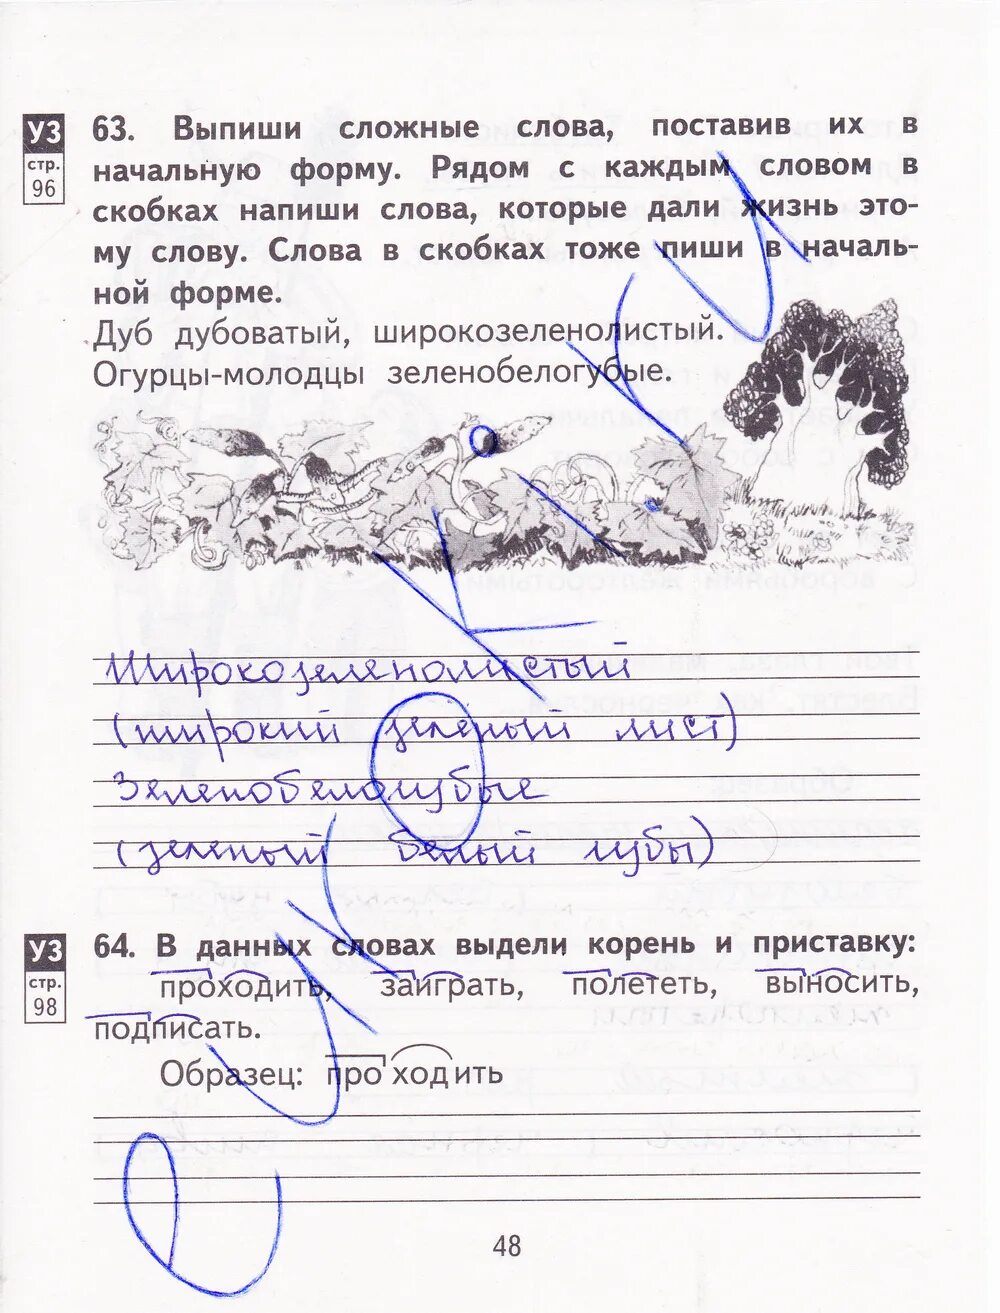 УЗ
стр.
96
63. Выпиши сложные слова, поставив их в
начальную форму. Рядом с каждым словом в
скобках напиши слова, которые дали жизнь это-
му слову. Слова в скобках тоже пиши в началь-
ной форме.
Дуб дубоватый, широкозеленолистый.
Огурцы-молодцы зеленобелогубые.
Широкозеленолистый
(широкий зеленый лист)
Зеленобелогубые
(зеленый белый губы)
УЗ
стр.
98
64. В данных словах выдели корень и приставку:
проходить, заиграть, полететь, выносить,
подписать.
Образец: проходить
48